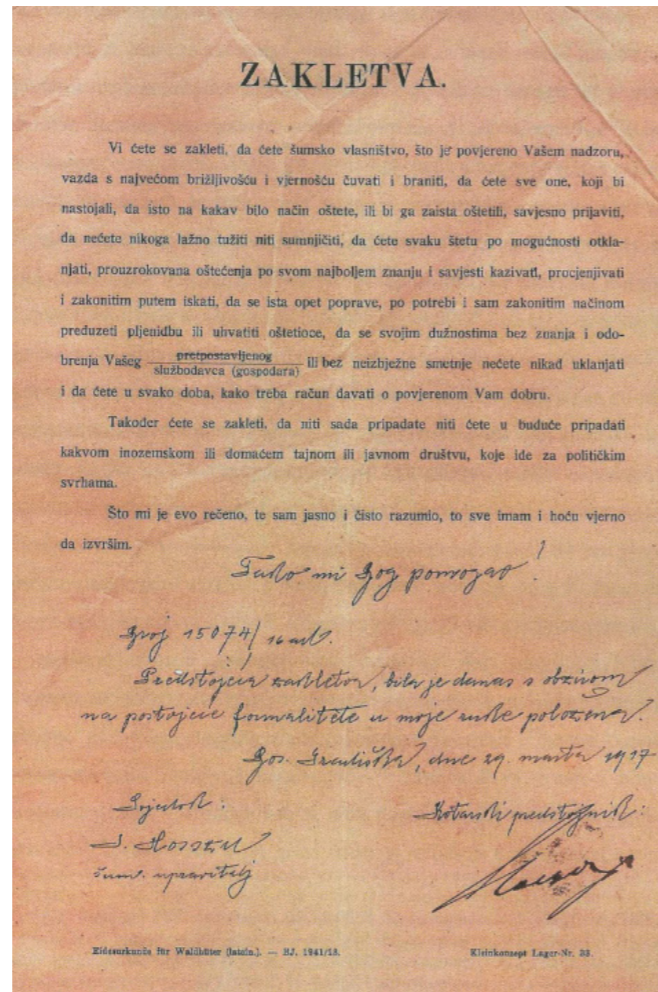 ZAKLETVA.
Vi ćete se zakleti, da ćete šumsko vlasništvo, što je povjereno Vašem nadzoru,
vazda s najvećom brižljivošću i vjernošću čuvati i braniti, da ćete sve one, koji bi
nastojali, da isto na kakav bilo način oštete, ili bi ga zaista oštetili, savjesno prijaviti,
da nećete nikoga lažno tužiti niti sumnjičiti, da ćete svaku štetu po mogućnosti otkla-
njati, prouzrokovana oštećenja po svom najboljem znanju i savjesti kazivati, procjenjivati
i zakonitim putem iskati, da se ista opet poprave, po potrebi i sam zakonitim načinom
preduzeti pljenidbu ili uhvatiti oštetioce, da se svojim dužnostima bez znanja i odo-
brenja Vašeg pretpostavljenog
službodavca (gospodara) ili bez neizbježne smetnje nećete nikad uklanjati
i da ćete u svako doba, kako treba račun davati o povjerenom Vam dobru.
Također ćete se zakleti, da niti sada pripadate niti ćete u buduće pripadati
kakvom inozemskom ili domaćem tajnom ili javnom društvu, koje ide za političkim
svrhama.
Što mi je evo rečeno, te sam jasno i čisto razumio, to sve imam i hoću vjerno
da izvršim.
Tako mi Bog pomogao!
Broj 15074/
Predstojeća zakletva, bila je danas s obzirom
na postojeće formalitete u moje ruke položena.
Bos. Gradiška, dne 29 marta 1917
Svjedok: Kotarski predstojnik:
šum. upravitelj
Eidesurkunde für Waldhüter (latein.). — BJ. 1941/13. Kleinkonzept Lager-Nr. 33.